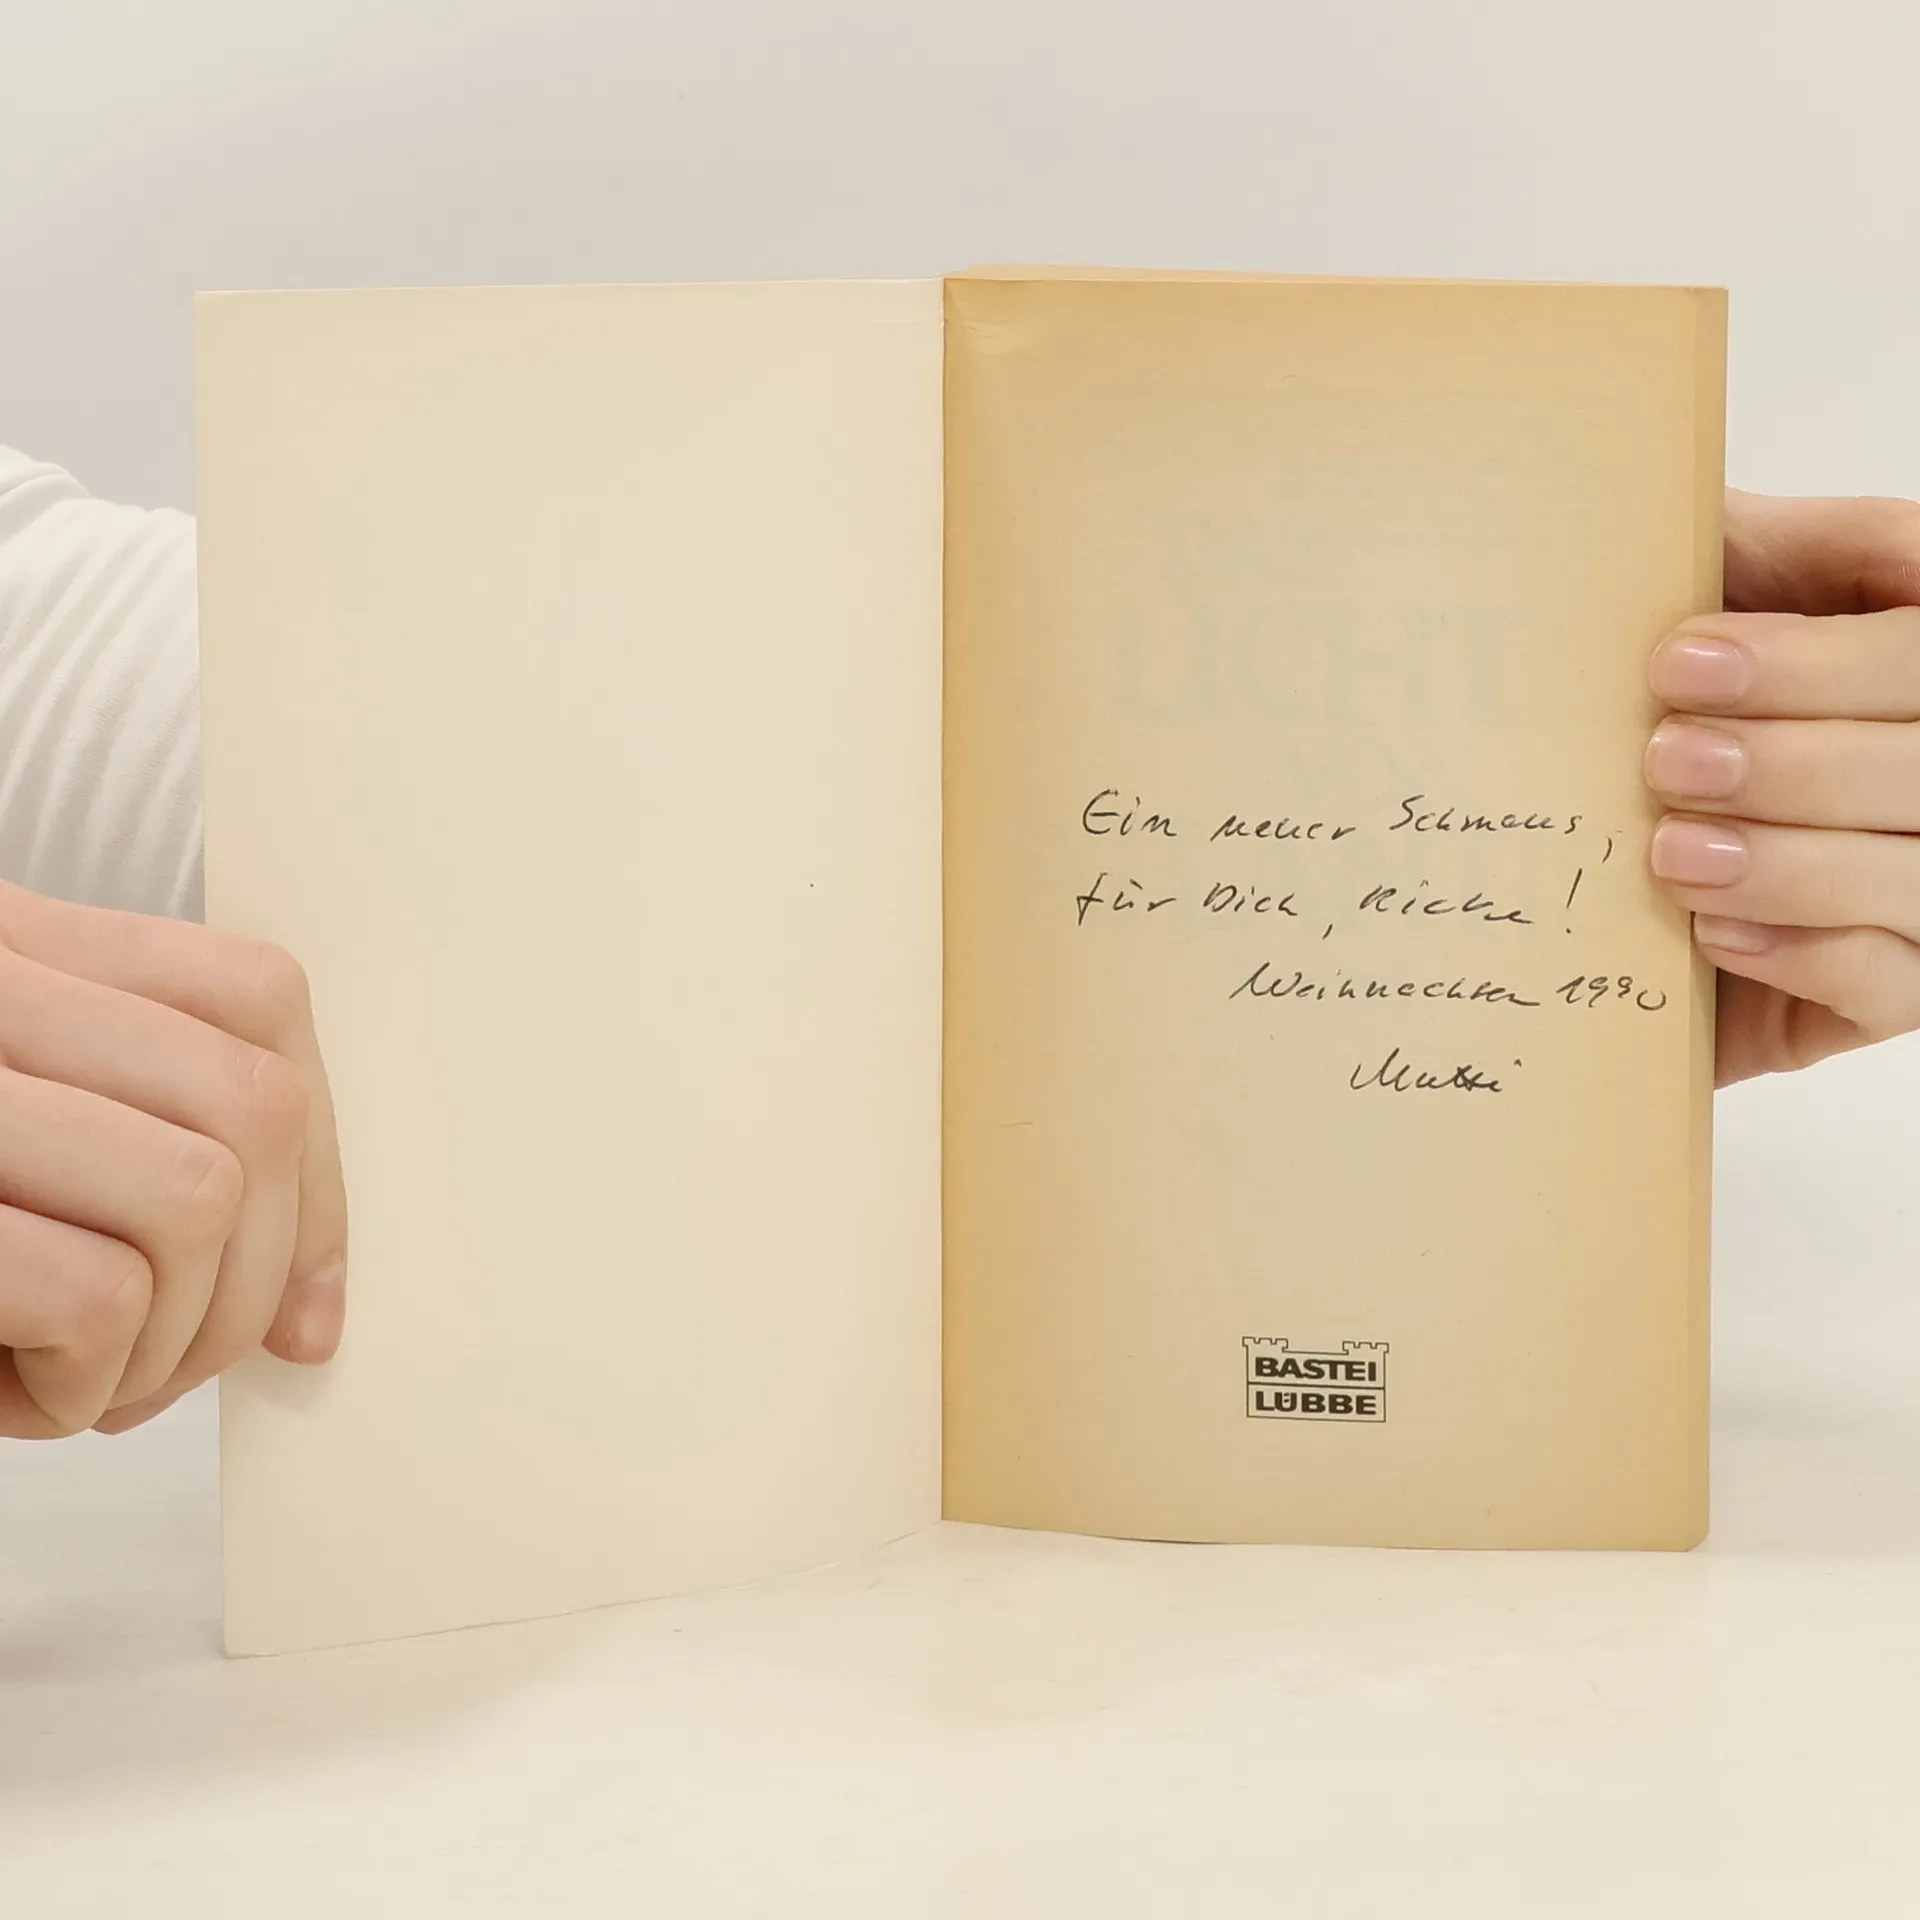 Ein neuer Schmaus,
für Dich, Ricke!
Weihnachten 1990
Mutti
BASTEI
LÜBBE